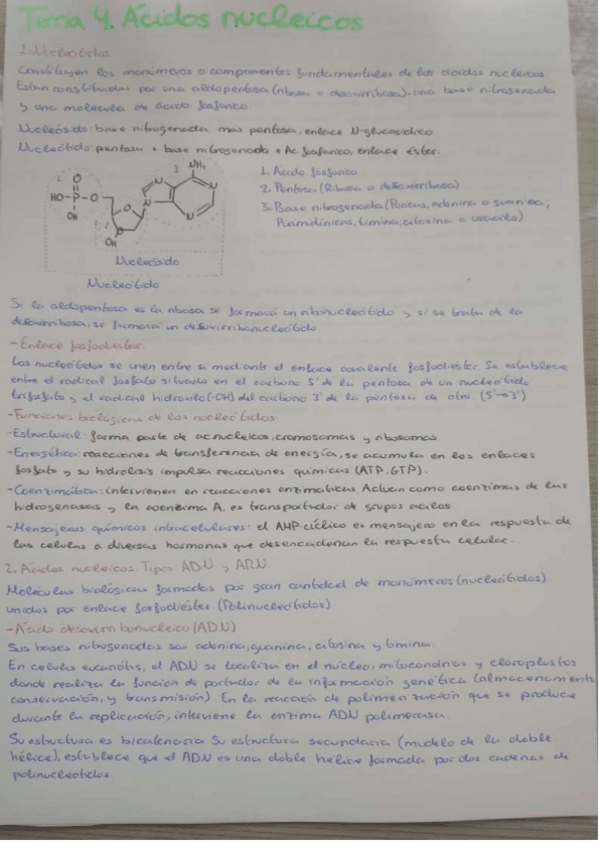 Tema 4. Ácidos nucleicos
1. Nucleótidos
Constituyen los monómeros o componentes fundamentales de los ácidos nucleicos.
Están constituidos por una aldopentosa (ribosa o desoxirribosa), una base nitrogenada
y una molécula de ácido fosfórico.
Nucleósido: base nitrogenada mas pentosa, enlace N-glucosídico
Nucleótido: pentosa + base nitrogenada + Ac fosfórico, enlace éster.
1. Ácido fosfórico
2. Pentosa (Ribosa o desoxirribosa)
3. Base nitrogenada (Púricas, adenina o guanina;
Pirimidínicas, timina, citosina o uracilo)
1
O
HO-P-O
OH
2
O
OH
3
NH₂
N
N
N
N
Nucleósido
Nucleótido
Si la aldopentosa es la ribosa se formará un ribonucleótido y si se trata de la
desoxirribosa, se formará un desoxirribonucleótido
- Enlace fosfodiéster.
Los nucleótidos se unen entre sí mediante el enlace covalente fosfodiéster. Se establece
entre el radical fosfato situado en el carbono 5' de la pentosa de un nucleótido
trifosfato y el radical hidroxilo (-OH) del carbono 3' de la pentosa de otro. (5'→3')
- Funciones biológicas de los nucleótidos.
- Estructural: forma parte de ac nucleicos, cromosomas y ribosomas.
- Energética: reacciones de transferencia de energía, se acumula en los enlaces
fosfato y su hidrólisis impulsa reacciones químicas (ATP, GTP).
- Coenzimática: intervienen en reacciones enzimáticas. Actúan como coenzimas de las
hidrogenasas y la coenzima A, es transportador de grupos acilos
- Mensajeros químicos intracelulares: el AMP-cíclico es mensajero en la respuesta de
las células a diversas hormonas que desencadenan la respuesta celular.
2. Ácidos nucleicos. Tipos: ADN y ARN
Moléculas biológicas formadas por gran cantidad de monómeros (nucleótidos)
unidos por enlace fosfodiéster (Polinucleótidos)
- Ácido desoxirribonucleico (ADN)
Sus bases nitrogenadas son adenina, guanina, citosina y timina.
En células eucariotas, el ADN se localiza en el núcleo, mitocondrias y cloroplastos
donde realiza la función de portador de la información genética (almacenamiento
conservación, y transmisión). En la reacción de polimerización que se produce
durante la replicación, interviene la enzima ADN polimerasa.
Su estructura es bicatenaria Su estructura secundaria (modelo de la doble
hélice), establece que el ADN es una doble hélice formada por dos cadenas de
polinucleótidos.